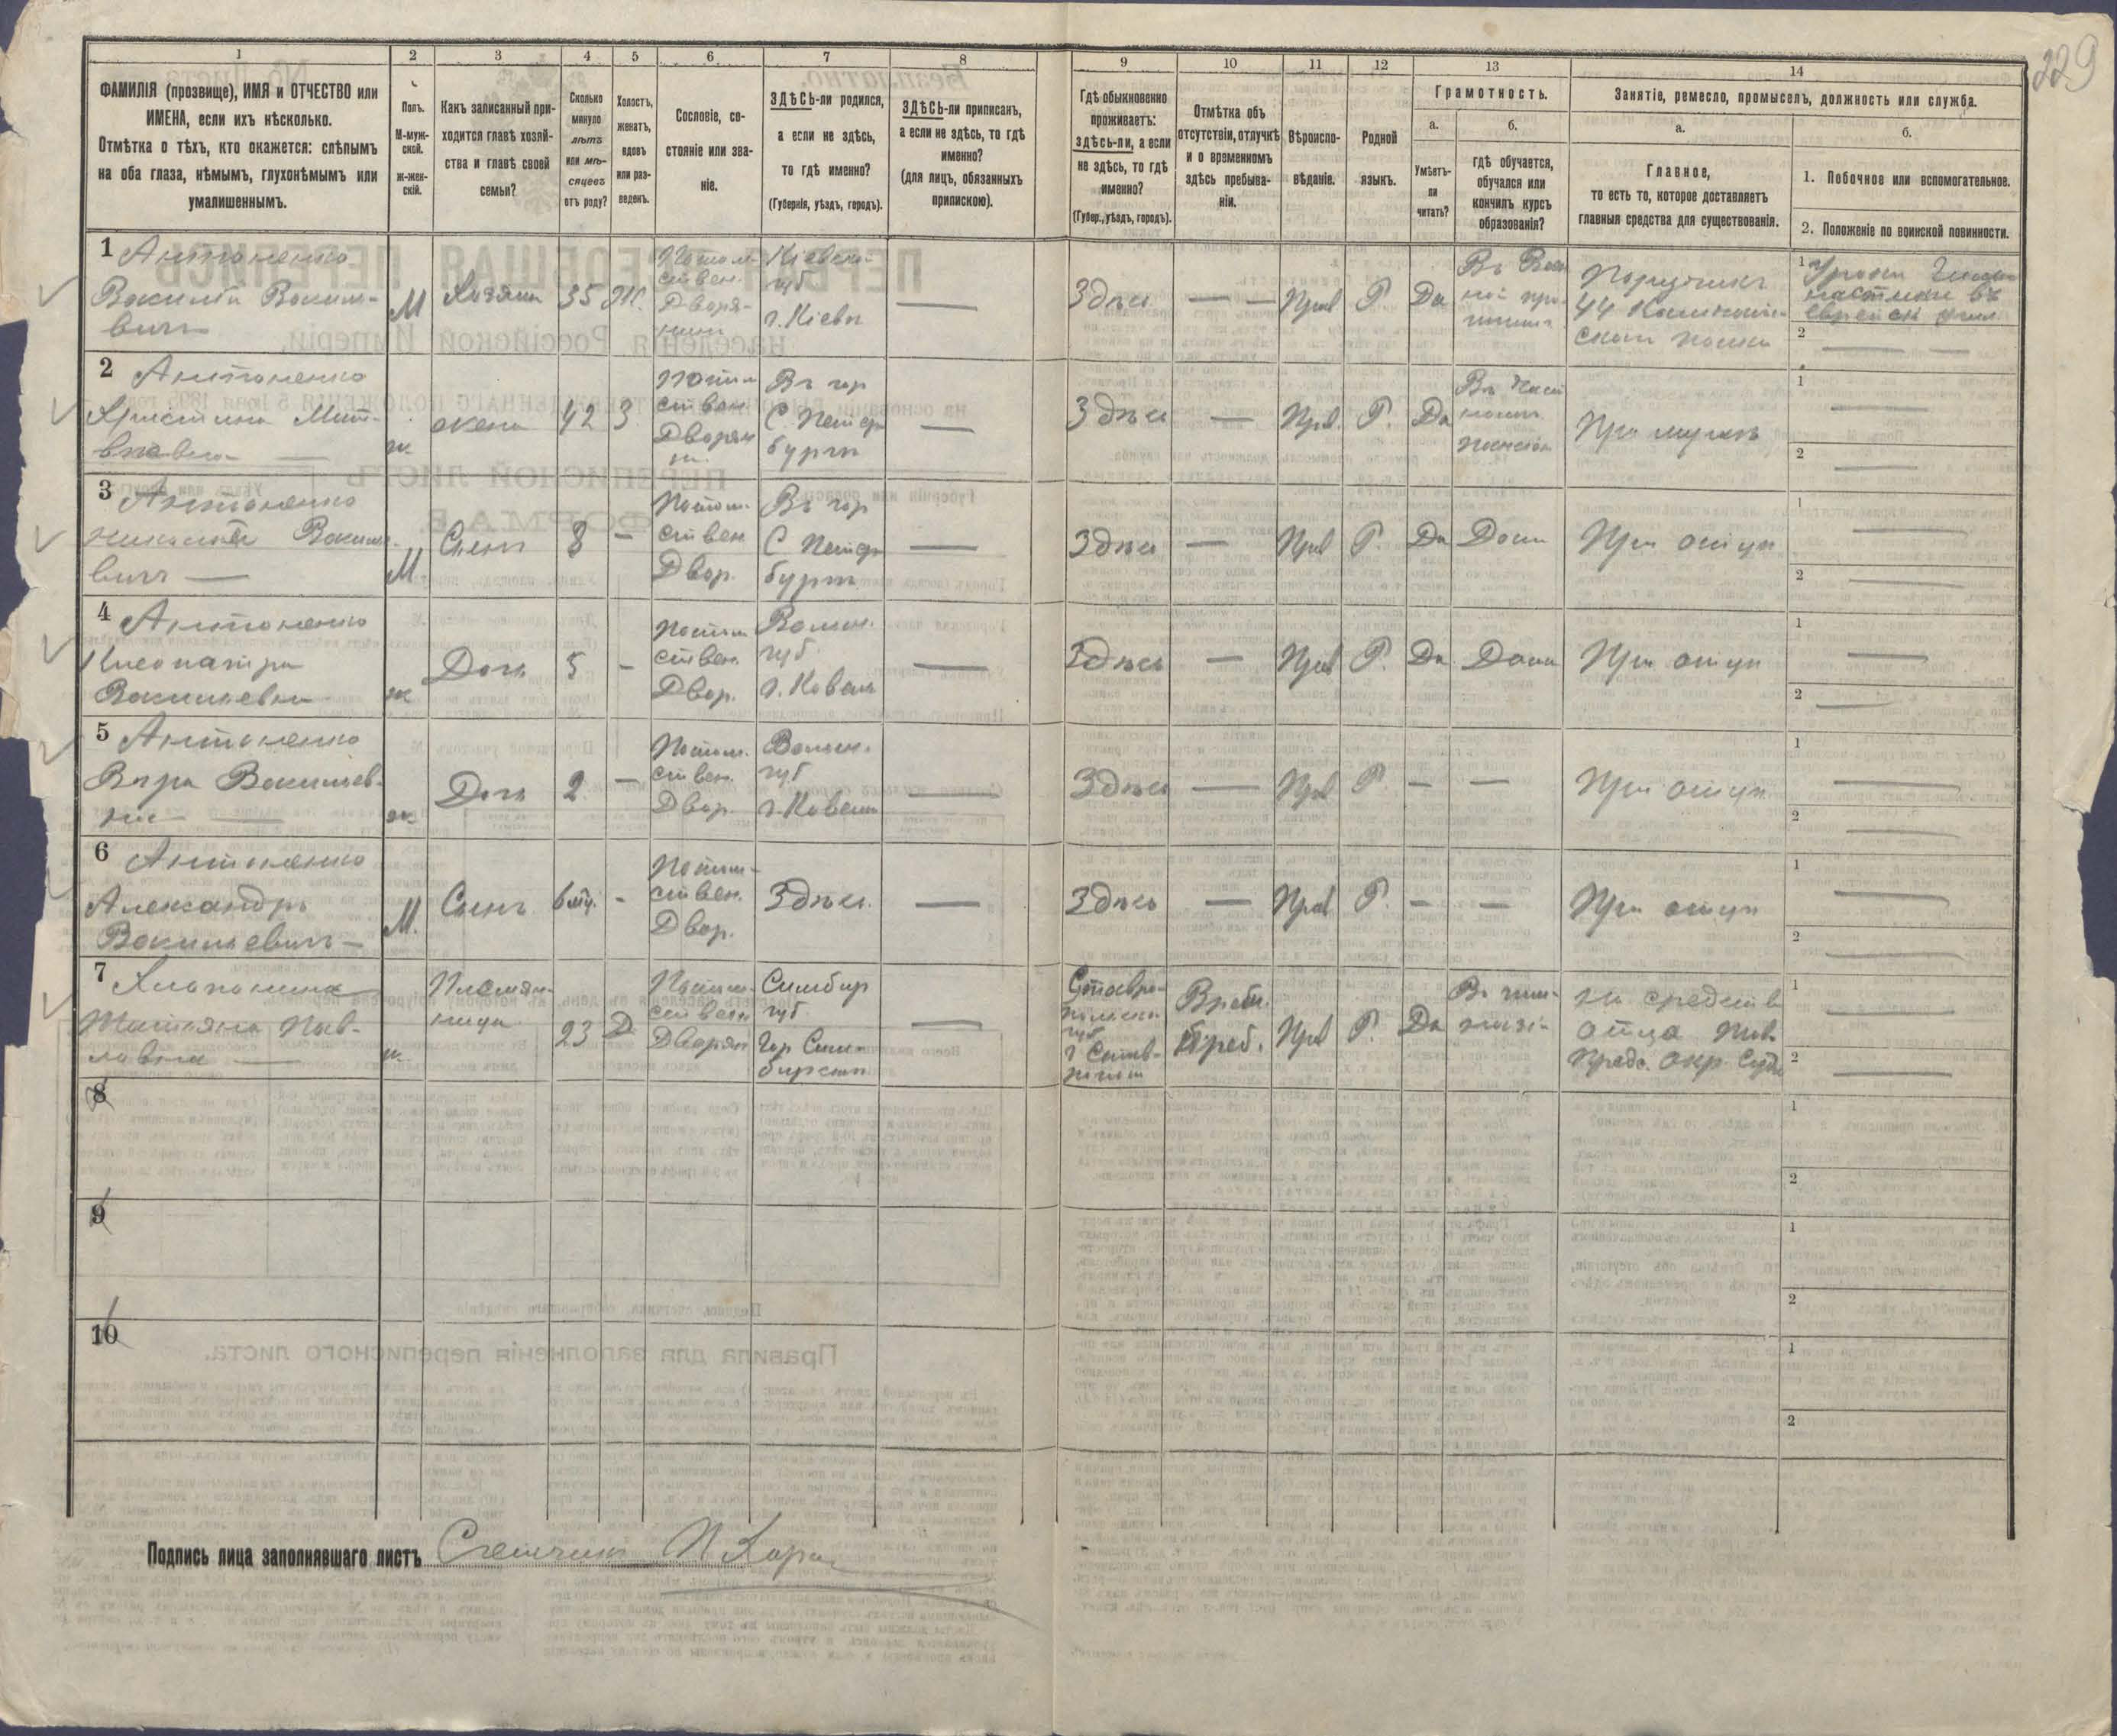 229
1
2
3
4
5
6
7
8
9
10
11
12
13
14
ФАМИЛІЯ (прозвище), ИМЯ и ОТЧЕСТВО или
ИМЕНА, если ихъ нѣсколько.
Отмѣтка о тѣхъ, кто окажется: слѣпымъ
на оба глаза, нѣмымъ, глухонѣмымъ или
умалишеннымъ.
Полъ.
М-муж-
ской.
ж-жен-
скій.
Какъ записанный при-
ходится главѣ хозяй-
ства и главѣ своей
семьи?
Сколько
минуло
лѣтъ
или мѣ-
сяцевъ
отъ роду?
Холостъ,
женатъ,
вдовъ
или раз-
веденъ.
Сословіе, со-
стояніе или зва-
ніе.
ЗДѢСЬ-ли родился,
а если не здѣсь,
то гдѣ именно?
(Губернія, уѣздъ, городъ).
ЗДѢСЬ-ли приписанъ,
а если не здѣсь, то гдѣ
именно?
(для лицъ, обязанныхъ
припискою).
Гдѣ обыкновенно
проживаетъ:
здѣсь-ли, а если
не здѣсь, то гдѣ
именно?
(Губер., уѣздъ, городъ).
Отмѣтка объ
отсутствіи, отлучкѣ
и о временномъ
здѣсь пребыва-
ніи.
Вѣроиспо-
вѣданіе.
Родной
языкъ.
Грамотность.
а.
Умѣетъ-
ли
читать?
б.
гдѣ обучается,
обучался или
кончилъ курсъ
образованія?
Занятіе, ремесло, промыселъ, должность или служба.
а.
Главное,
то есть то, которое доставляетъ
главныя средства для существованія.
б.
1. Побочное или вспомогательное.
2. Положеніе по воинской повинности.
1 Антоненко
Василій Василь-
вичъ
М
Хозяинъ
35
Ж.
Потом-
ствен.
Дворя-
нинъ
Кіевск.
губ
г. Кіевъ
Здѣсь
Прав
Р
Да
Поручикъ
44
полка
1 Уроки Гимна-
стики въ
2
2 Антоненко
Христина Мат-
вѣевна
ж.
жена
42
З.
Потом
ствен
Дворян
Въ гор
С. Петер
бургѣ
Здѣсь
Прав.
Р.
Да
Въ Част
номъ
пансіонѣ
При мужѣ
1
2
3 Антоненко
Николай Василь-
вичъ
М
Сынъ
8
Потом.
ствен
Двор.
Въ гор
С Петер
бургѣ
Здѣсь
Прав
Р.
Да
Дома
При отцѣ
1
2
4 Антоненко
Клеопатра
Васильевна
ж
Дочь
5
Потом
ствен.
Двор.
Волын.
губ.
г. Ковель
Здѣсь
Прав
Р.
Да
Дома
При отцѣ
1
2
5 Антоненко
Вѣра Васильев-
на
ж.
Дочь
2
Потом.
ствен.
Двор.
Волын.
губ
г. Ковель
Здѣсь
Прав
Р.
При отцѣ
1
2
6 Антоненко
Александръ
Васильевичъ
М.
Сынъ
6 мц.
Потом-
ствен.
Двор.
Здѣсь.
Здѣсь
Прав
Р.
При отцѣ
1
2
7
Татьяна Пав-
ловна
ж.
Племян-
ница
23
Д.
Потом.
ствен
Дворян
Симбир
губ.
Гор Сим-
бирскъ
Ставро-
польск
губ
г Став-
рополь
Врем.
преб.
Прав
Р.
Да
Въ гим-
назіи
на средства
отца
Предс. Окр. Суда
1
2
8
1
2
9
1
2
10
1
2
Подпись лица заполнявшаго листъ Счетчикъ